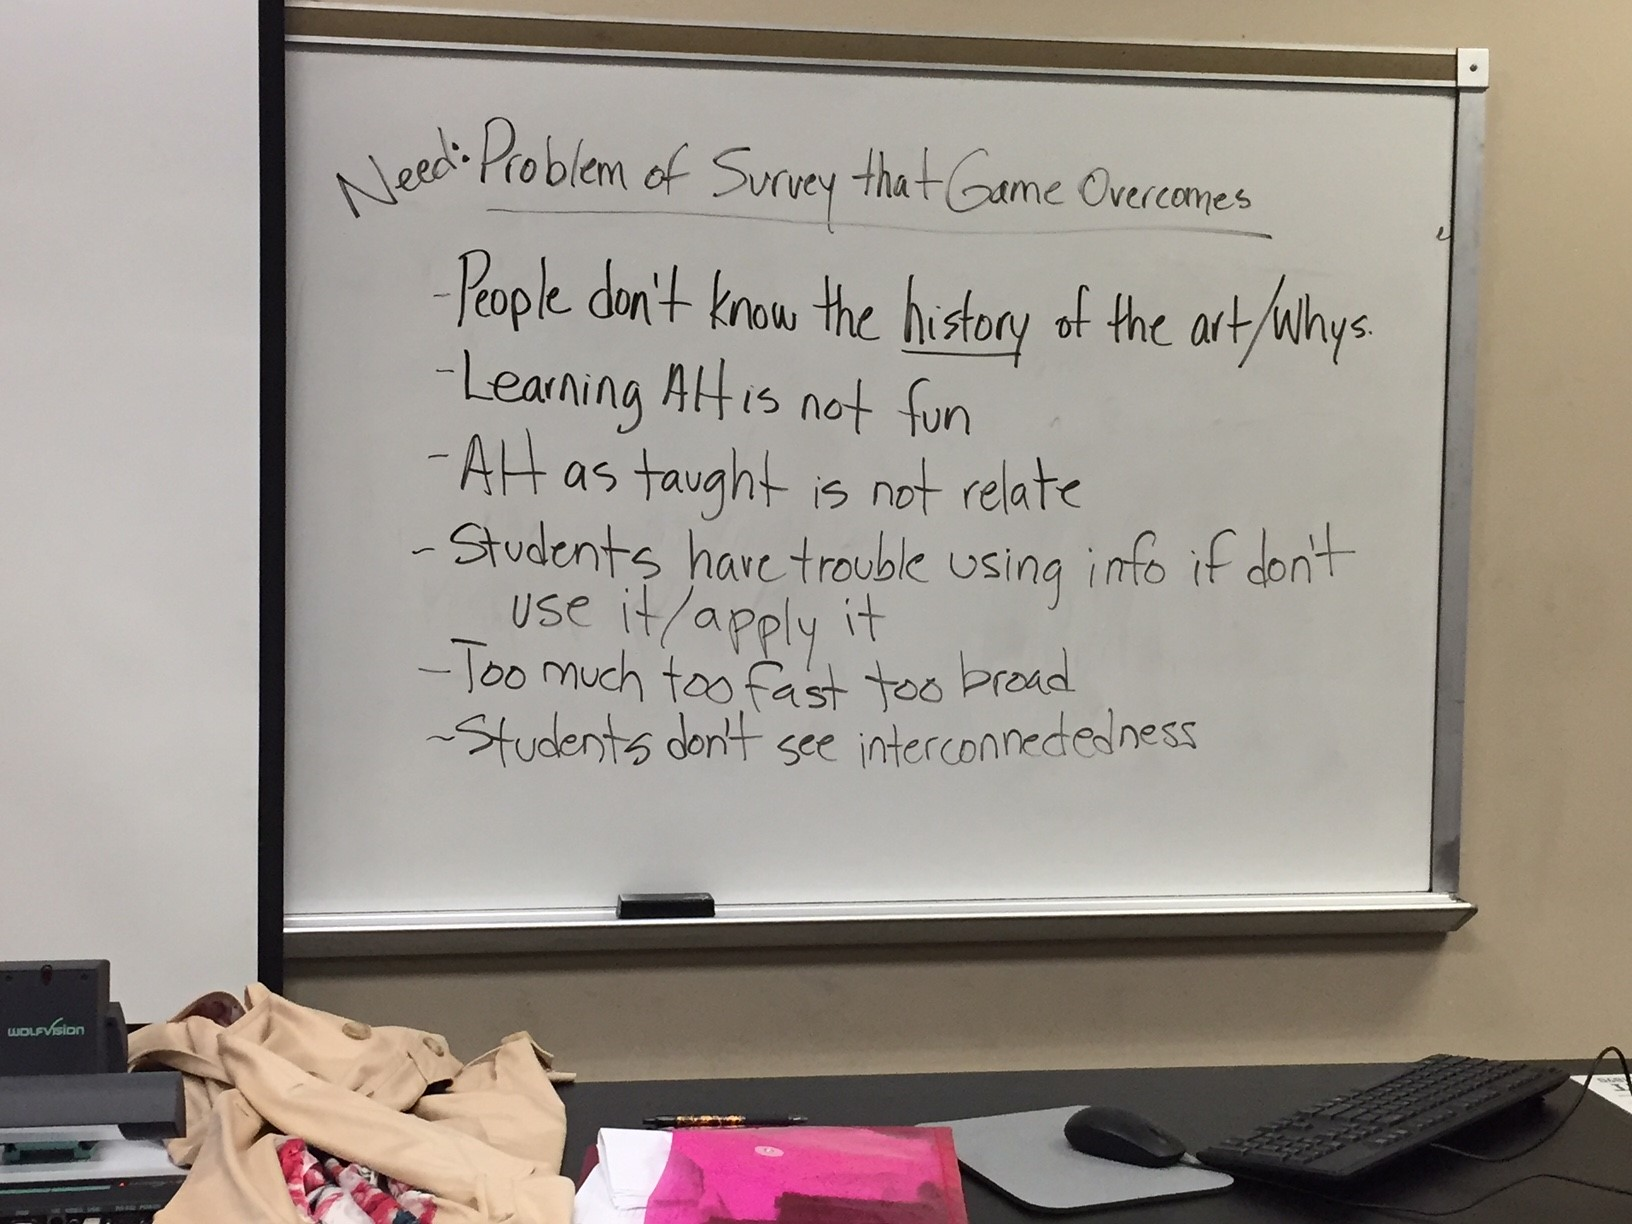 Need: Problem of Survey that Game Overcomes
- People don't know the history of the art/Whys.
- Learning AH is not fun
- AH as taught is not relate
- Students have trouble using info if don't
use it/apply it
- Too much too fast too broad
- Students don't see interconnectedness
WOLFVISION